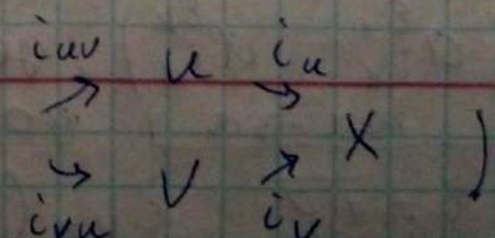 i_{uv} u i_u
→ →
X )
→ V →
i_{vu} i_v